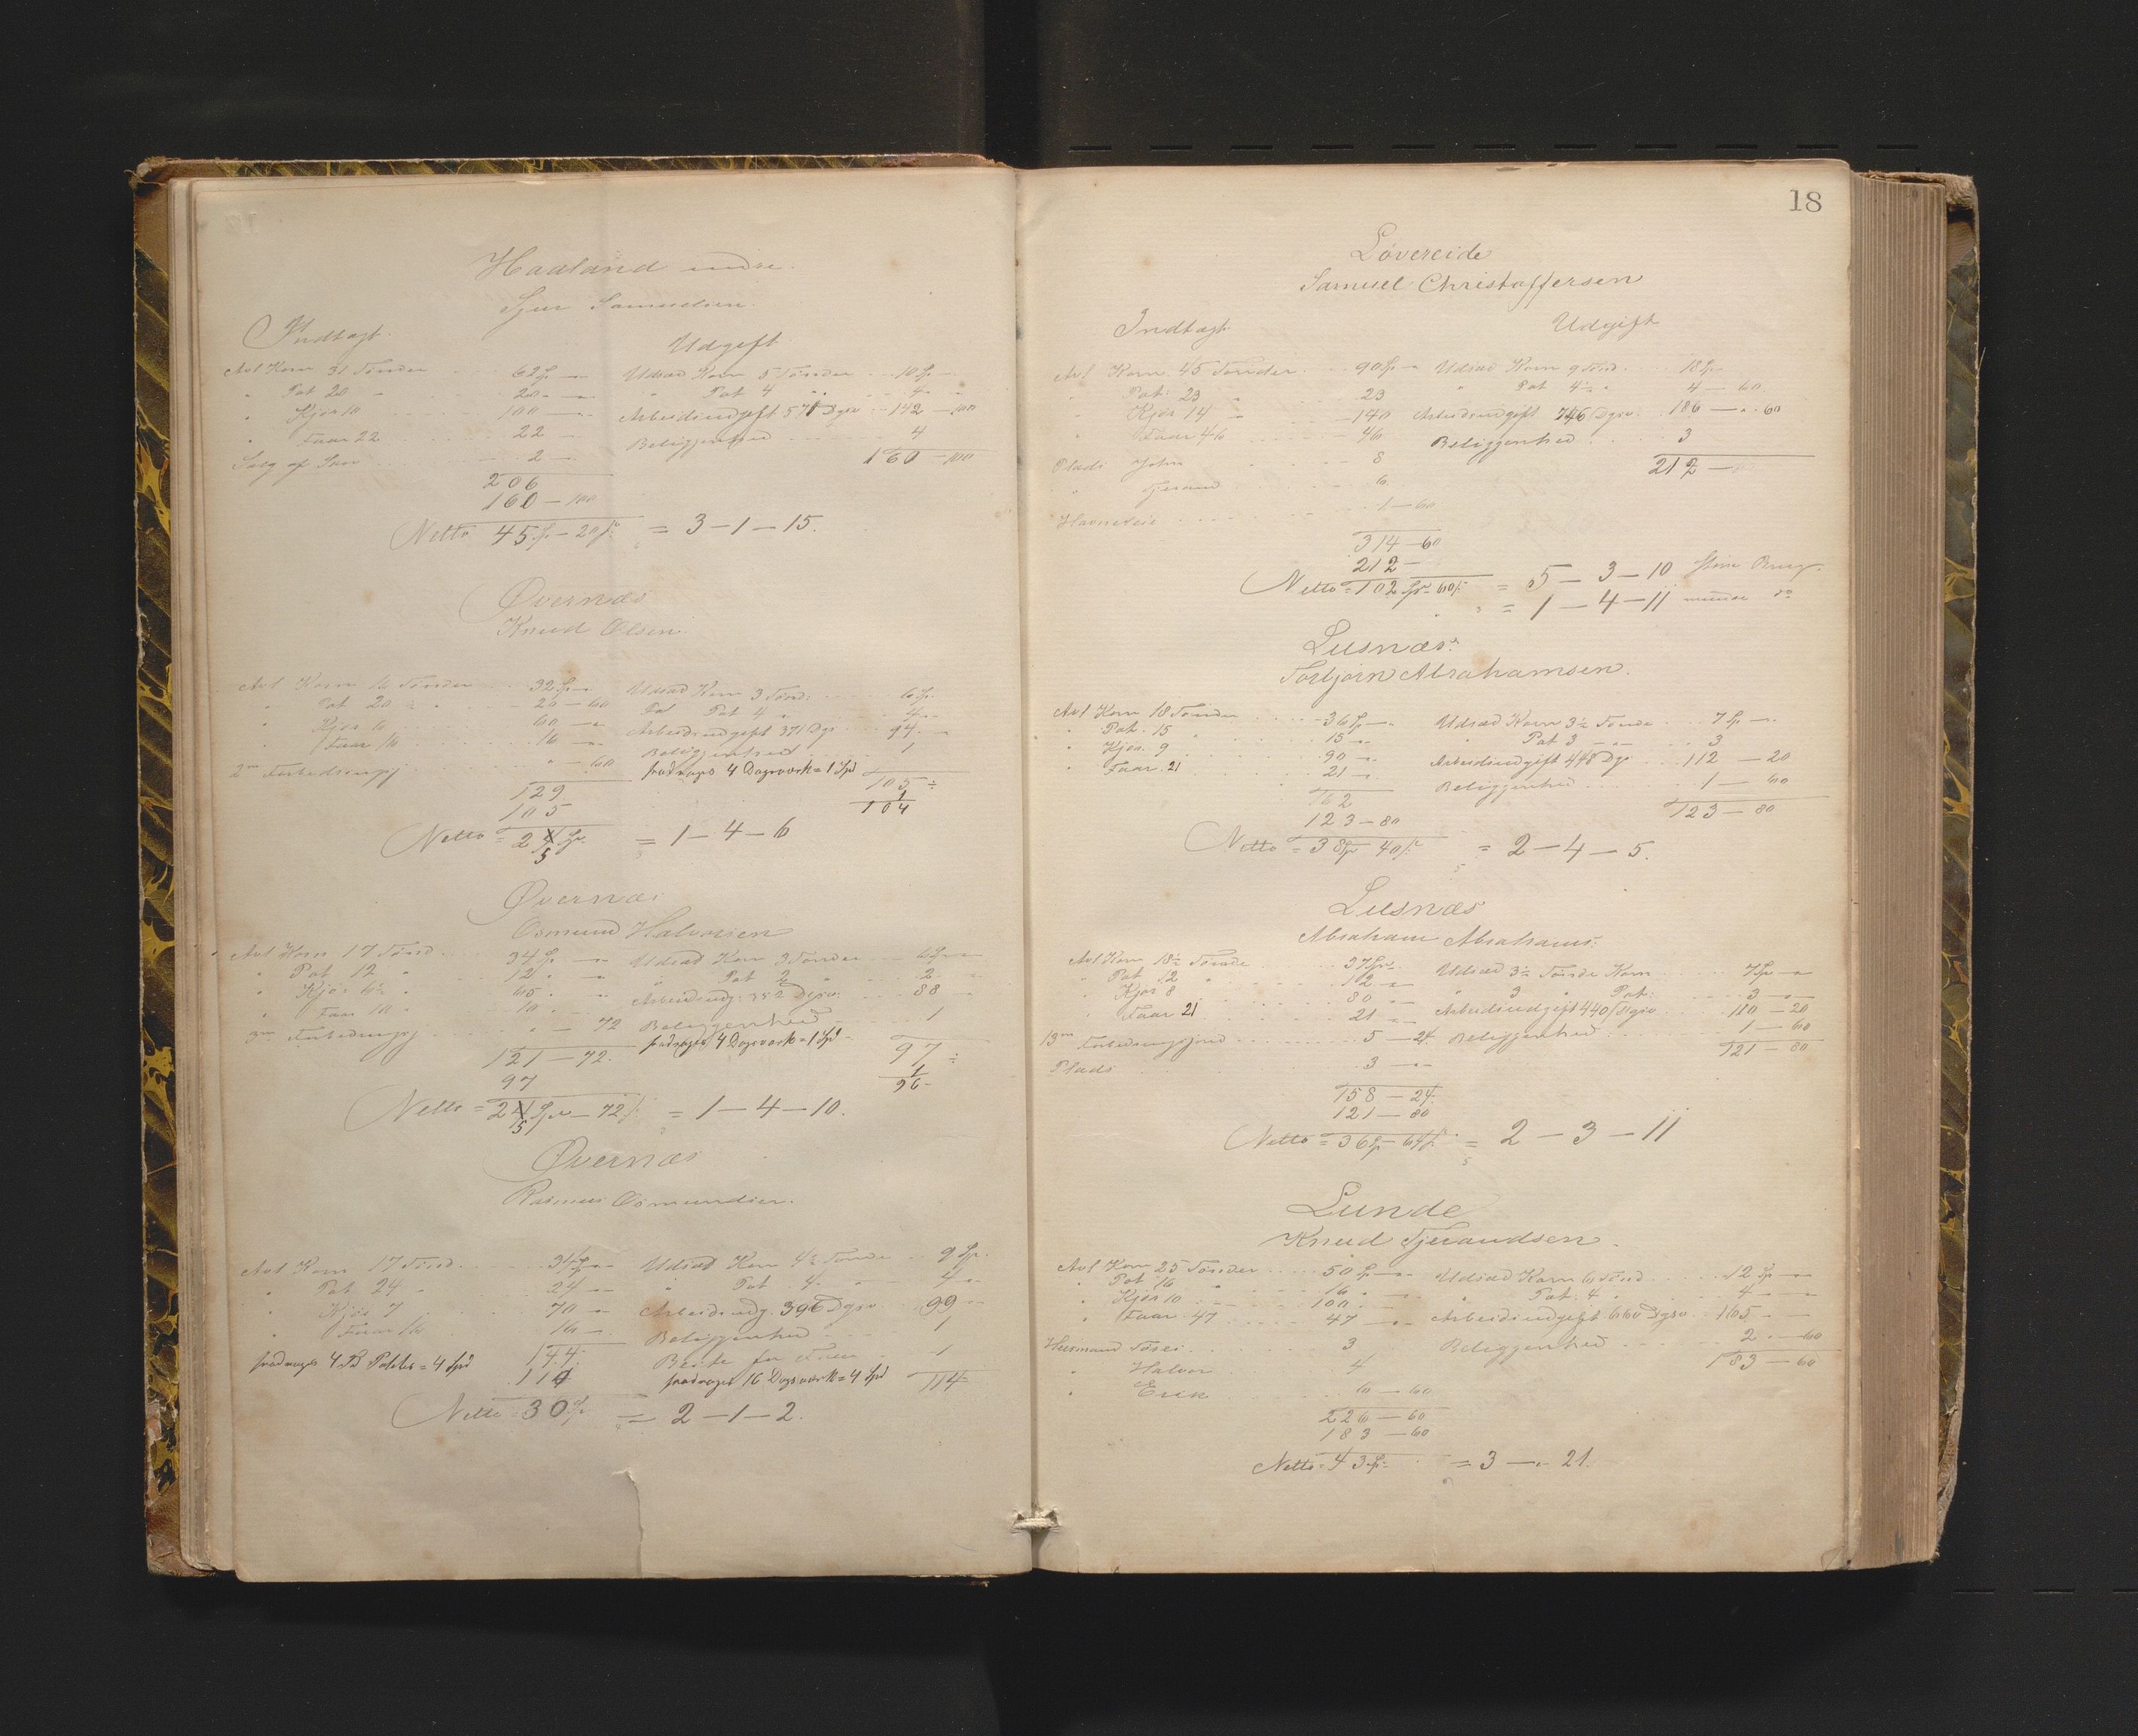 Haaland indre.
Sjur Samuelsen.
Indtægt. Udgift
Avl Korn 31 Tønder 62 Sp — Udsæd Korn 5 Tønder 10 Sp —
" Pot 20 " 20 — " Pot 4 " 4 —
" Kjør 10 100 — Arbeidsudgift 571 Dgsv 142 — 100
" Faar 22 22 — Beliggenhed 4
Salg af 2 — 160 — 100
206
160 — 100
Netto 45 Sp — 20 ſ = 3 — 1 — 15.
Øvernæs
Knud Olsen.
Avl Korn 16 Tønder 32 Sp — Udsæd Korn 3 Tønd: 6 Sp.
" Pot 20 ½ " 20 — 60 Pot 4 " 4 —
" Kjør 6 60 — Arbeidsudgift 371 Dgs 94 —
" Faar 16 16 — Beliggenhed 1
2m Forbedringsj " — 60 fradrages 4 Dagsværk = 1 Spd 105 ÷
129 1
105 104
Netto = 24 Sp. = 1 — 4 — 6
5
Øvernæs
Osmund Halvorsen
Avl Korn 17 Tønd. 34 Sp — Udsæd Korn 3 Tønder 6 Sp —
" Pot 12 " 12 " " " Pot 2 " 2 —
" Kjør 6½ " 65 " " Arbeidsudg: 352 Dgsv. 88
" Faar 10 " 10 " Beliggenhed 1
3m Forbedringsj " — 72 fradrages 4 Dagsværk = 1 Spd 97 ÷
121 — 72. 1
97 96 -
Netto = 24 Spd — 72 ſ = 1 — 4 — 10.
5
Øvernæs
Rasmus Osmundsen.
Avl Korn 17 Tønd. 34 Sp — Udsæd Korn 4½ Tønde 9 Sp.
" Pot 24 " 24 — " Pot 4 " 4 —
" Kjør 7 70 — Arbeidsudg. 396 Dgsv. 99 —
" Faar 16 16 — Beliggenhed 1
fradrages 4 Td Poteter = 4 Spd 144. Beite for 1
114 fradrages 16 Dagsværk = 4 Spd 114
Netto = 30 Sp. = 2 — 1 — 2.
18
Løvereide
Samuel Christoffersen
Indtægt Udgift
Avl Korn. 45 Tønder. 90 Sp — Udsæd Korn 9 Tønd. 18 Sp —
" Pot. 23 " 23 " Pot 4½ " 4 — 60.
" Kjør 14 " 140 Arbeidsudgift 746 Dgsv. 186 — " 60
" Faar 46 46 Beliggenhed 3
Plads John 8 212 —
" Tjerand 6
Havneleie 1 — 60
314 — 60
212 —
Netto = 102 Spd 60 ſ = 5 — 3 — 10 større Brug.
" = 1 — 4 — 11 mindre do
Lusnæs.
Torbjørn Abrahamsen.
Avl Korn 18 Tønder 36 Sp — Udsæd Korn 3½ Tønde 7 Sp —
" Pot. 15 " 15 — " Pot 3 — " 3
" Kjør. 9 90 — Arbeidsudgift 448 Dgs 112 — 20
" Faar. 21 21 — Beliggenhed 1 — 60
162 123 — 80
123 — 80
Netto = 38 Sp 40 ſ = 2 — 4 — 5.
Lusnæs
Abraham Abrahams:
Avl Korn 18½ Tønde 37 Spd. Udsæd 3½ Tønde Korn 7 Sp —
" Pot 12 " 12 — " 3 " Pot: 3 —
" Kjør 8 80 — Arbeidsudgift 440 Dgsv 110 — 20
" Faar 21 21 — Beliggenhed 1 — 60
13m Forbedringsjord 5 — 24. 121 — 80
Plads 3 —
158 — 24.
121 — 80
Netto = 36 Sp — 64 ſ. = 2 — 3 — 11
Lunde
Knud Tjerandsen.
Avl Korn 25 Tønder 50 Sp — Udsæd Korn 6 Tønd 12 Sp —
" Pot 16 " 16 " " Pot. 4 " 4 —
" Kjør 10 100 " Arbeidsudgift 660 Dgsv 165 —
" Faar 47 47 — Beliggenhed 2 " — 60
Husmand Tores 3 183 — 60
" Halvor 4
" Erik 6 — 60
226 — 60
183 — 60
Netto = 43 Sp. = 3 — " 21.